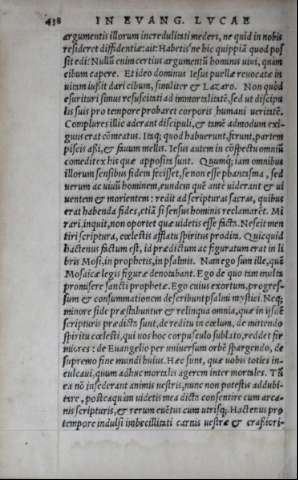 438 IN EVANG. LVCAE
argumentis illorum incredulitati mederi, ne quid in nobis
resideret diffidentiæ: ait: Habetis'ne hic quippiā quod pos
sit edi: Nullū enim certius argumentū hominis uiui, quam
cibum capere. Et ideo dominus Iesus puellæ reuocatæ in
uitam iussit dari cibum, similiter & Lazaro. Non quòd
esurituri simus resuscitati ad immortalitatē, sed ut discipu
lis suis pro tempore probaret corporis humani ueritatē.
Complures illic aderant discipuli, & tamē admodum exi
guus erat cōmeatus. Itaq; quod habuerunt, ferunt, partem
piscis assi, & fauum mellis. Iesus autem in cōspectu omniū
comedit ex his quæ apposita sunt. Quumq; iam omnibus
illorum sensibus fidem fecisset, se non esse phantasma, sed
uerum ac uiuū hominem, eundem quē antè uiderant & ui
uentem & morientem: redit ad scripturas sacras, quibus
erat habenda fides, etiā si sensus hominis reclamaret. Mi
rari, inquit, non oportet quæ uidetis esse facta. Nesciūt men
tiri scripturæ, cœlestis afflatu spiritus proditæ. Quicquid
hactenus factum est, id prædictum ac figuratum erat in li
bris Mosi, in prophetis, in psalmis. Nam ego sum ille, quē
Mosaicæ legis figuræ denotabant. Ego de quo tam multa
promisere sancti prophetæ. Ego cuius exortum, progres-
sum & consummationem describunt psalmi mystici. Neq;
minore fide præstabuntur & reliqua omnia, quæ in ijsdē
scripturis prædicta sunt, de reditu in cœlum, de mittendo
spiritu cœlesti, qui uos hoc corpusculo sublato, reddet fir
miores: de Euangelio per uniuersum orbē spargendo, de
supremo fine mundi huius. Hæc sunt, quæ uobis toties in-
culcaui, quum adhuc mortalis agerem inter mortales. Tū
ea nō insederant animis uestris, nunc non potestis addubi-
tare, posteaquàm uidetis mea dicta consentire cum arca-
nis scripturis, & rerum euētus cum utrisq; Hactenus pro
tempore indulsi imbecillitati carnis uestræ & crassiori-